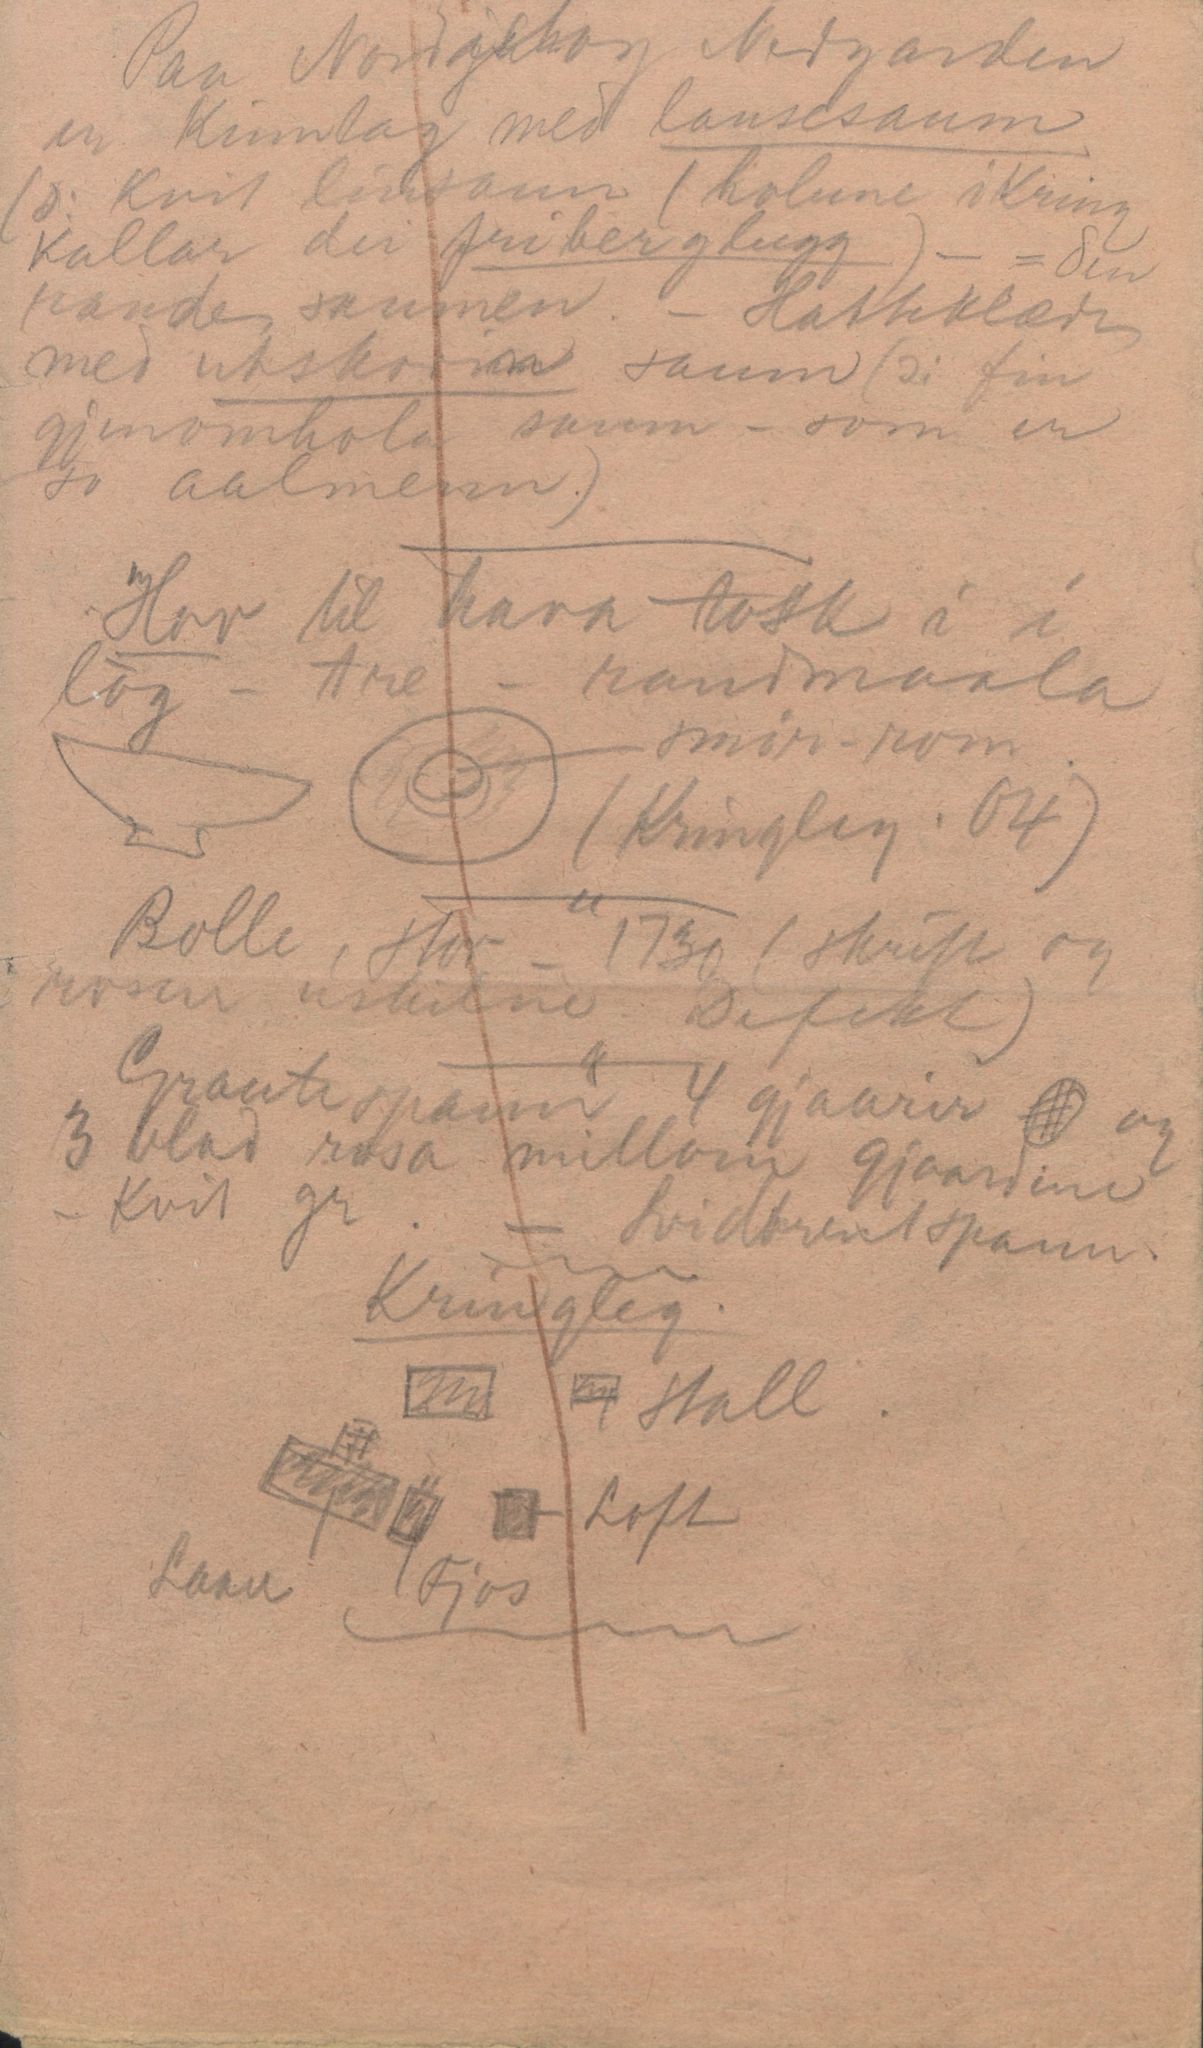 Paa Nordgarhoug Nedgarden
er Kinnlag med lausesaum
(ɔ: Kvit linsaum (holune ikring
Kallar dei friberglugg) – = den
raude saumen. – Hatteklæde
med utskorin saum (ɔ: fin
gjenomhola saum – som er
so aalmenn.)
"Hov til hava tosk i i
lög – tre – randmaala
smör-rom.
(Kringleg. 04)
Bolle, stor – "1730 (skrift og
rosur uskilne. Defekt)
Grautespann" 4 gjaarir og
3 blad rosa millom gjaardine
– Kvit gr. – Svidbrentspann.
Kringleg.
Stall.
Loft
Laau Fjos